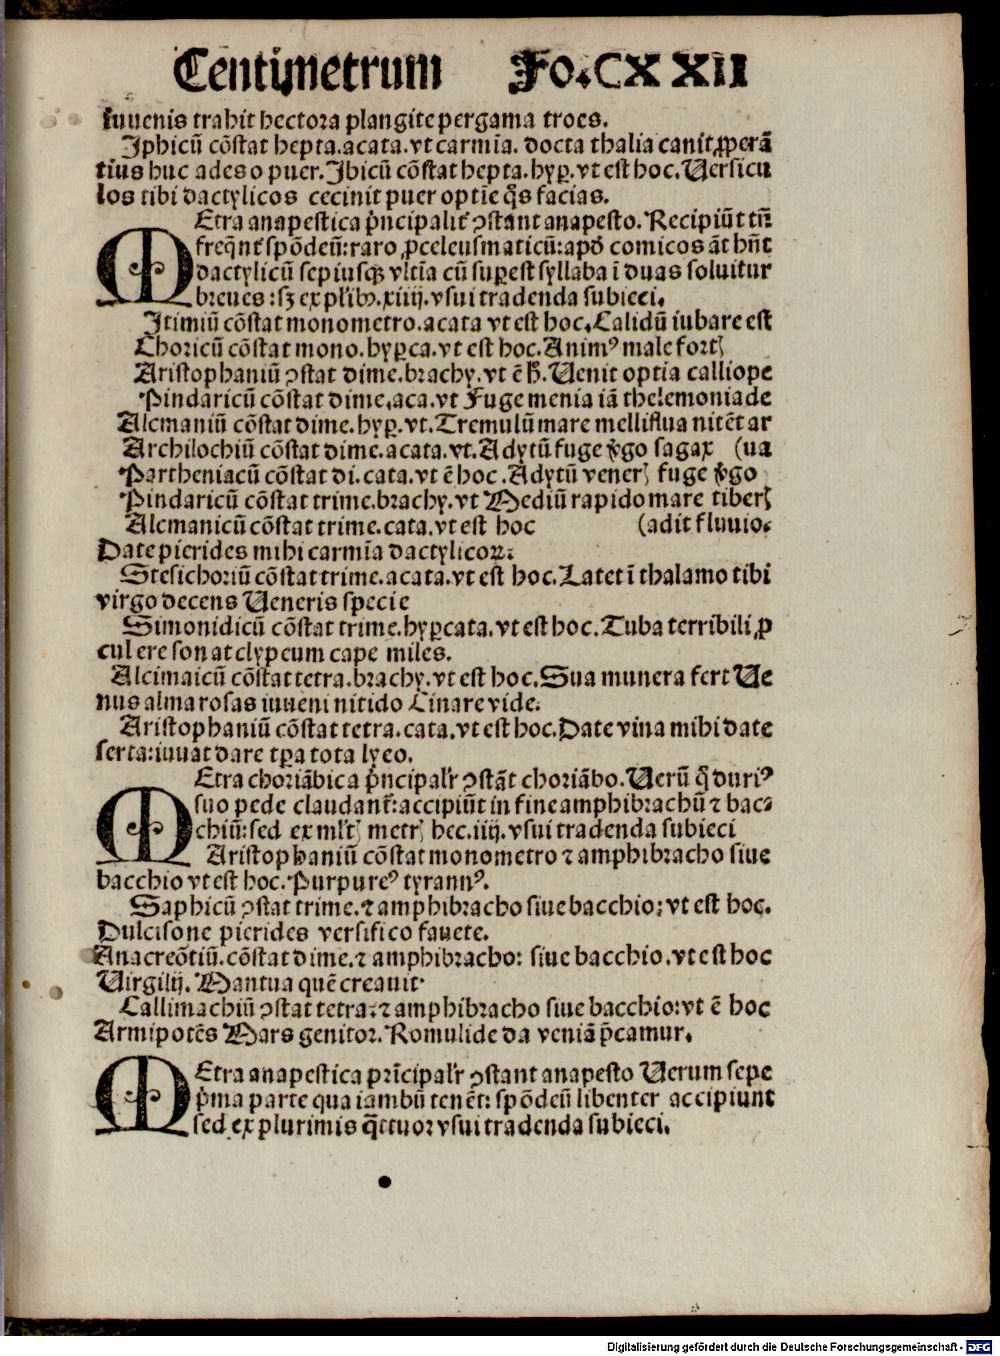 Centimetrum Fo.CXXII
iuuenis trahit hectora plangite pergama troes.
Iphicū cōstat hepta.acata.vt carmīa. docta thalia canit ꝓperā
tius huc ades o puer. Ibicū cōstat hepta.hyp̱.vt est hoc. Uersicu
los tibi dactylicos cecinit puer optīe q̄s facias.
MEtra anapestica p̄ncipalit᷑ ꝯstant anapesto. Recipiūt tn̄
freq̄nt᷑ spōdeū: raro ꝓceleusmaticū: apd̄ comicos āt hn̄t
dactylicū sepiusqꝫ vltīa cū suꝑest syllaba ī duas soluitur
breues: sꝫ ex pl̄ibꝫ.xiiij.vsui tradenda subieci.
Itimiū cōstat monometro.acata vt est hoc. Calidū iubare est
Choricū cōstat mono.hyꝑca.vt est hoc. Animꝰ male fortꝭ
Aristophaniū ꝯstat dime.brachy.vt ē h̄. Uenit optīa calliope
Pindaricū cōstat dime.aca.vt Fuge menia iā thelemoniade
Alcmaniū cōstat dime.hyꝑ.vt. Tremulū mare melliflua nitēt ar
Archilochiū cōstat dime.acata.vt. Adytū fuge v̄go sagax (ua
Partheniacū cōstat di.cata.vt ē hoc. Adytū venerꝭ fuge v̄go
Pindaricū cōstat trime.brachy.vt Mediū rapido mare tiberꝭ
Alcmanicū cōstat trime.cata.vt est hoc (adit fluuio.
Date pierides mihi carmīa dactylicoꝝ.
Stesichoriū cōstat trime.acata.vt est hoc. Latet ī thalamo tibi
virgo decens Ueneris specie
Simonidicū cōstat trime.hyꝑcata.vt est hoc. Tuba terribili ꝓ
cul ere sonat clypeum cape miles.
Alcimaicū cōstat tetra.brachy.vt est hoc. Sua munera fert Ue
nus alma rosas iuueni nitido Cinare vide.
Aristophaniū cōstat tetra.cata.vt est hoc. Date vina mihi date
serta: iuuat dare tꝑa tota lyeo.
MEtra choriābica p̄ncipalr̄ ꝯstāt choriābo. Uerū q̄ duriꝰ
suo pede claudant᷑: accipiūt in fine amphibrachū ⁊ bac-
chiū: sed ex ml̄tꝭ metrꝭ hec.iiij.vsui tradenda subieci
Aristophaniū cōstat monometro ⁊ amphibracho siue
bacchio vt est hoc. Purpureꝰ tyrannꝰ.
Saphicū ꝯstat trime.⁊ amphibracho siue bacchio: vt est hoc.
Dulcisone pierides versifico fauete.
Anacreōtiū.cōstat dime.⁊ amphibracho: siue bacchio.vt est hoc
Uirgilij. Mantua quē creauit.
Callimachiū ꝯstat tetra.⁊ amphibracho siue bacchio: vt ē hoc
Armipotēs Mars genitor. Romulide da veniā p̄camur.
MEtra anapestica prīcipalr̄ ꝯstant anapesto Uerum sepe
p̄ma parte qua iambū tenēt: spōdeū libenter accipiunt
sed ex plurimis q̄ttuor vsui tradenda subieci.
Digitalisierung gefördert durch die Deutsche Forschungsgemeinschaft - DFG